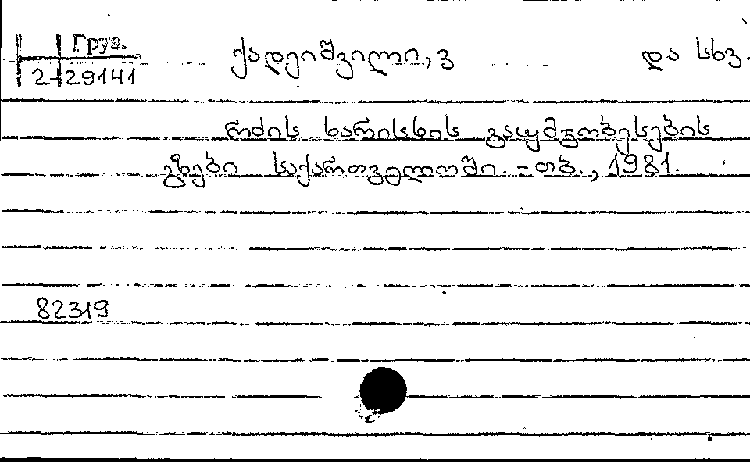 Груз.
2-29141
ქადეიშვილი, ვ და სხვ.
რძის ხარისხის გაუმჯობესების
გზები საქართველოში. - თბ., 1981.
82319